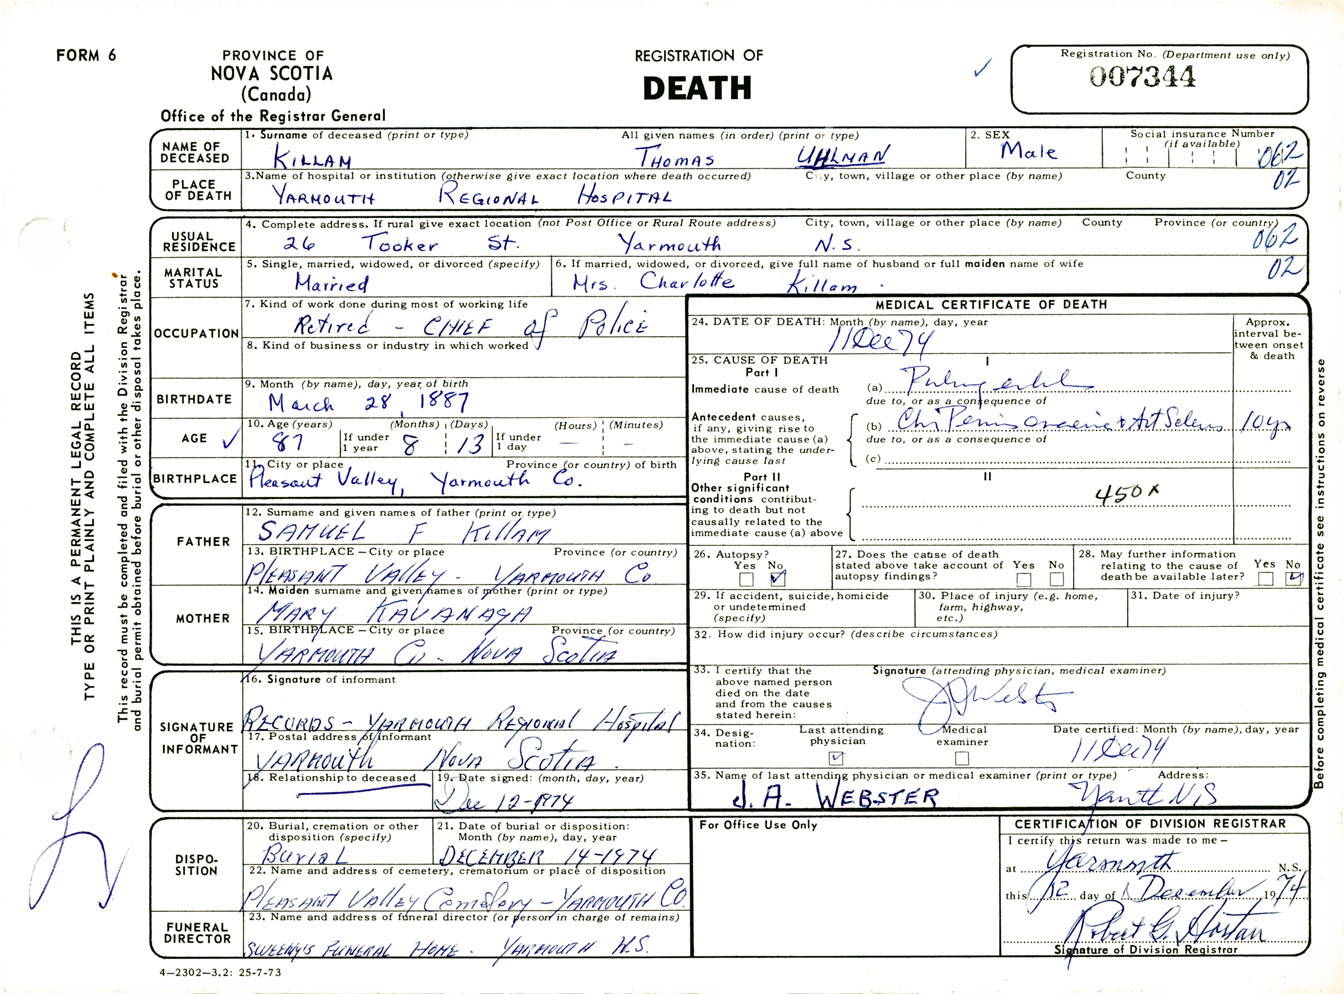 FORM 6
PROVINCE OF
NOVA SCOTIA
(Canada)
Office of the Registrar General
REGISTRATION OF
DEATH
Registration No. (Department use only)
007344
NAME OF DECEASED
1. Surname of deceased (print or type) All given names (in order) (print or type)
KILLAM THOMAS UHLMAN
2. SEX
Male
Social insurance Number
(if available)
062
PLACE OF DEATH
3. Name of hospital or institution (otherwise give exact location where death occurred) City, town, village or other place (by name) County
02
YARMOUTH REGIONAL HOSPITAL
USUAL RESIDENCE
4. Complete address. If rural give exact location (not Post Office or Rural Route address) City, town, village or other place (by name) County Province (or country)
26 Tooker St. Yarmouth N.S. 062
MARITAL STATUS
5. Single, married, widowed, or divorced (specify)
Married
6. If married, widowed, or divorced, give full name of husband or full maiden name of wife
02
Mrs. Charlotte Killam.
OCCUPATION
7. Kind of work done during most of working life
Retired - CHIEF of Police
8. Kind of business or industry in which worked
BIRTHDATE
9. Month (by name), day, year of birth
March 28, 1887
AGE
10. Age (years) (Months) (Days) (Hours) (Minutes)
87 If under 1 year 8 13 If under 1 day — –
BIRTHPLACE
11. City or place Province (or country) of birth
Pleasant Valley, Yarmouth Co.
FATHER
12. Surname and given names of father (print or type)
SAMUEL F KILLAM
13. BIRTHPLACE – City or place Province (or country)
PLEASANT VALLEY - YARMOUTH CO
MOTHER
14. Maiden surname and given names of mother (print or type)
MARY KAVANAGH
15. BIRTHPLACE – City or place Province (or country)
YARMOUTH Co. NOVA SCOTIA
SIGNATURE OF INFORMANT
16. Signature of informant
RECORDS - YARMOUTH REGIONAL HOSPITAL
17. Postal address of informant
YARMOUTH NOVA SCOTIA.
18. Relationship to deceased
19. Date signed: (month, day, year)
Dec 12-1974
DISPO-
SITION
20. Burial, cremation or other disposition (specify)
BURIAL
21. Date of burial or disposition:
Month (by name), day, year
DECEMBER 14-1974
22. Name and address of cemetery, crematorium or place of disposition
PLEASANT VALLEY Cemetery - YARMOUTH CO.
FUNERAL DIRECTOR
23. Name and address of funeral director (or person in charge of remains)
SWEENY'S FUNERAL HOME. YARMOUTH N.S.
4–2302–3.2: 25-7-73
MEDICAL CERTIFICATE OF DEATH
24. DATE OF DEATH: Month (by name), day, year
11 Dec 74
Approx. interval be-
tween onset & death
25. CAUSE OF DEATH I
Part I
Immediate cause of death (a)
due to, or as a consequence of
Antecedent causes, if any, giving rise to the immediate cause (a) above, stating the under-
lying cause last
(b) 10 yrs
due to, or as a consequence of
(c)
Part II II
Other significant conditions contribut-
ing to death but not causally related to the immediate cause (a) above
450x
26. Autopsy?
Yes No
27. Does the cause of death stated above take account of autopsy findings? Yes No
28. May further information relating to the cause of death be available later? Yes No
29. If accident, suicide, homicide or undetermined (specify)
30. Place of injury (e.g. home, farm, highway, etc.)
31. Date of injury?
32. How did injury occur? (describe circumstances)
33. I certify that the above named person died on the date and from the causes stated herein:
Signature (attending physician, medical examiner)
J A Webster
34. Desig-
nation:
Last attending physician
Medical examiner
Date certified: Month (by name), day, year
11 Dec 74
35. Name of last attending physician or medical examiner (print or type) Address:
J. A. WEBSTER Yarm N S
For Office Use Only
CERTIFICATION OF DIVISION REGISTRAR
I certify this return was made to me –
at Yarmouth N.S.
this 12 day of December 1974
Robert G. Horton
Signature of Division Registrar
THIS IS A PERMANENT LEGAL RECORD
TYPE OR PRINT PLAINLY AND COMPLETE ALL ITEMS
This record must be completed and filed with the Division Registrar
and burial permit obtained before burial or other disposal takes place.
Before completing medical certificate see instructions on reverse